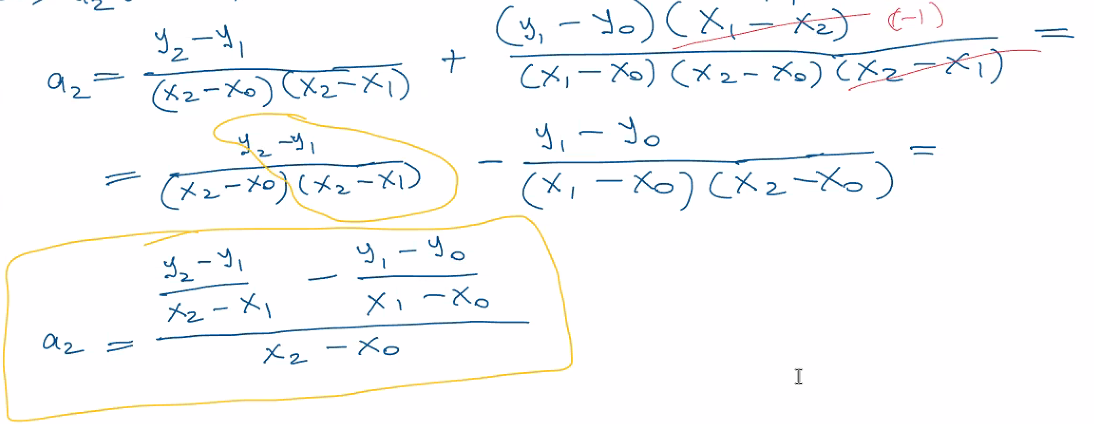 a₂ = (y₂ - y₁) / ((x₂ - x₀)(x₂ - x₁)) + ((y₁ - y₀)(x₁ - x₂)(-1)) / ((x₁ - x₀)(x₂ - x₀)(x₂ - x₁)) =
= (y₂ - y₁) / ((x₂ - x₀)(x₂ - x₁)) - (y₁ - y₀) / ((x₁ - x₀)(x₂ - x₀)) =
a₂ = ((y₂ - y₁) / (x₂ - x₁) - (y₁ - y₀) / (x₁ - x₀)) / (x₂ - x₀)